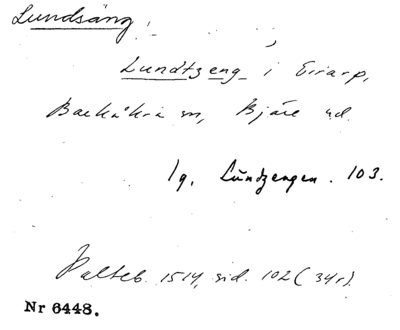 Lundsäng.
Lundtzeng i Eriarp,
Backåkra sn, Bjäre hd.
1q. Lundzengen. 103.
Palteb. 1514, sid. 102 (34r).
Nr 6448.